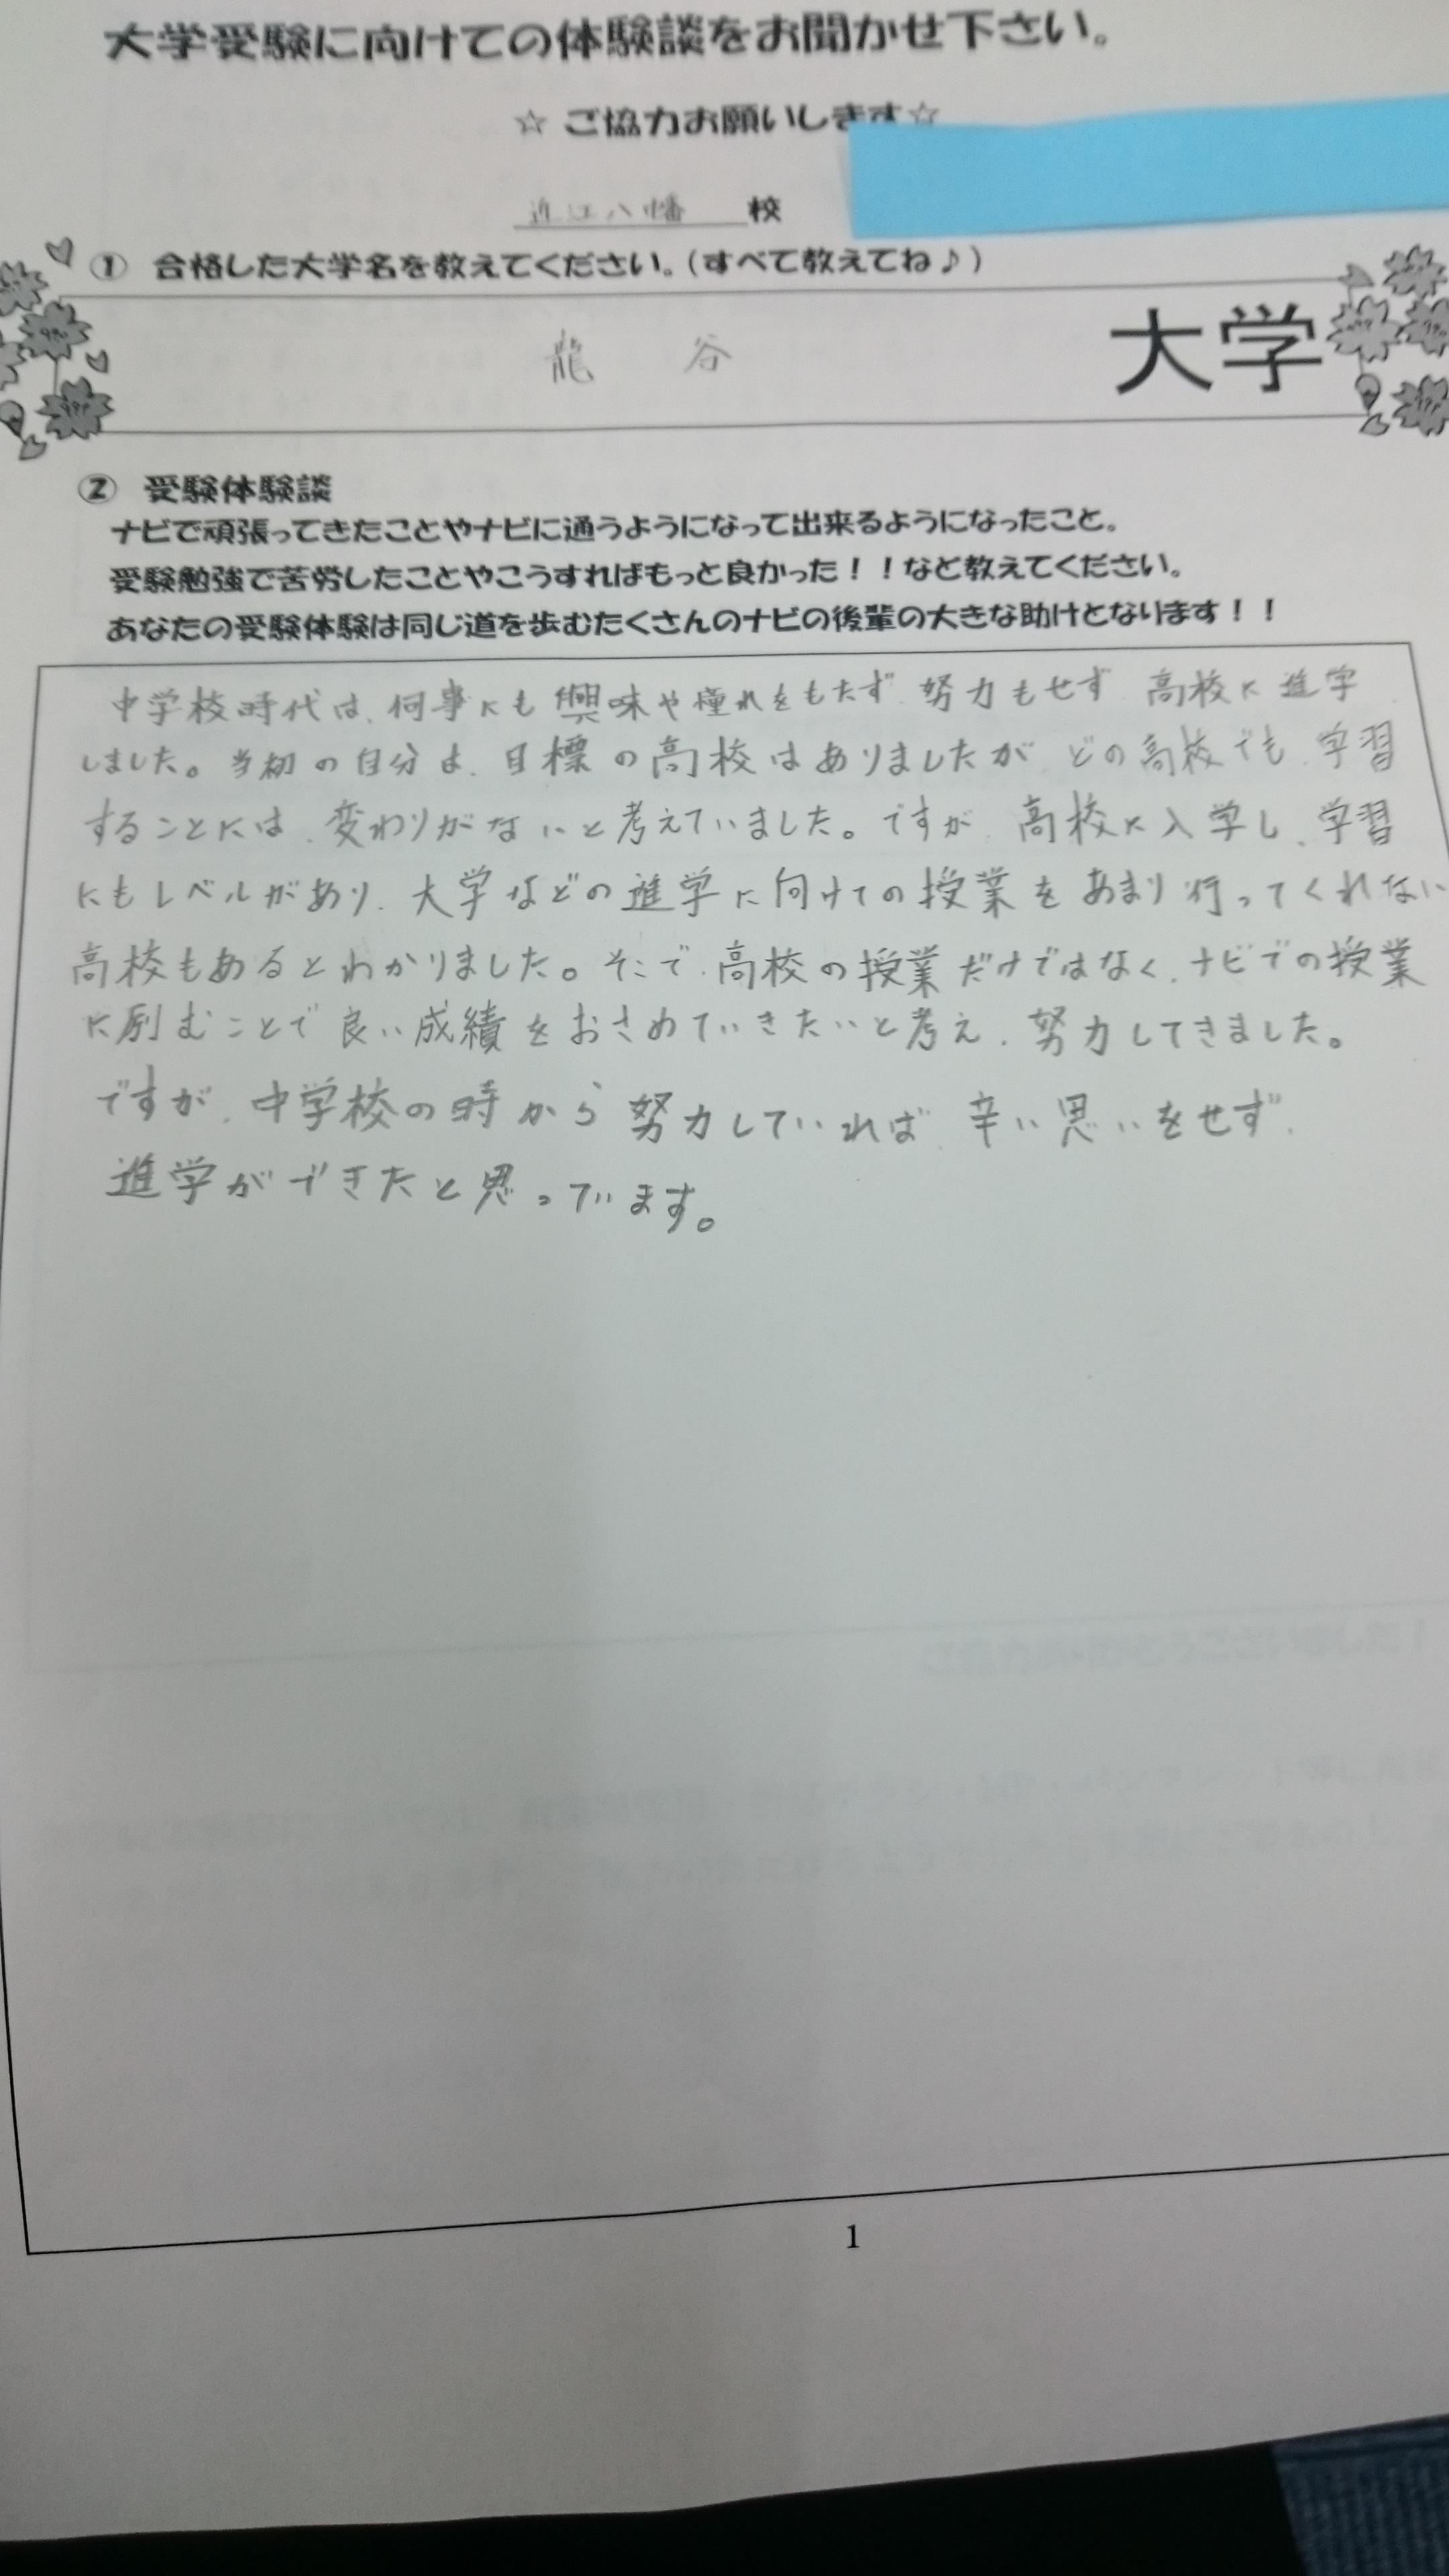 大学受験に向けての体験談をお聞かせ下さい。
☆ ご協力お願いします☆
近江八幡 校
① 合格した大学名を教えてください。(すべて教えてね♪)
龍 谷 大学
② 受験体験談
ナビで頑張ってきたことやナビに通うようになって出来るようになったこと。
受験勉強で苦労したことやこうすればもっと良かった!!など教えてください。
あなたの受験体験は同じ道を歩むたくさんのナビの後輩の大きな助けとなります!!
中学校時代は、何事にも興味や憧れをもたず、努力もせず、高校に進学
しました。当初の自分は、目標の高校はありましたが、どの高校でも、学習
することには、変わりがないと考えていました。ですが、高校に入学し、学習
にもレベルがあり、大学などの進学に向けての授業をあまり行ってくれない
高校もあるとわかりました。そこで、高校の授業だけではなく、ナビでの授業
に励むことで良い成績をおさめていきたいと考え、努力してきました。
ですが、中学校の時から努力していれば、辛い思いをせず、
進学ができたと思っています。
ご協力ありがとうございました!
1